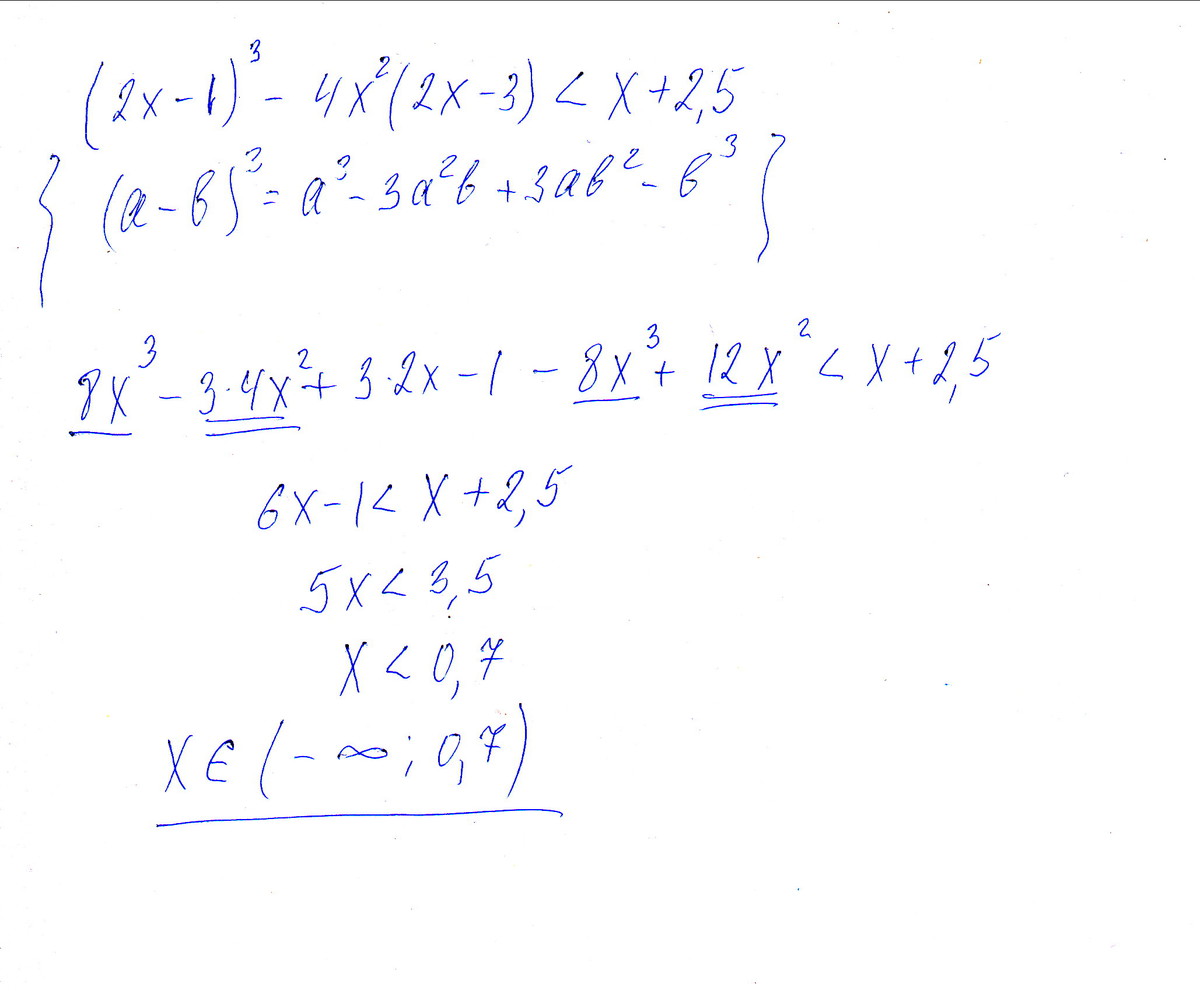 (2x-1)³ - 4x²(2x-3) < x+2,5
{ (a-b)³ = a³ - 3a²b + 3ab² - b³ }
8x³ - 3·4x² + 3·2x - 1 - 8x³ + 12x² < x+2,5
6x-1 < x+2,5
5x < 3,5
x < 0,7
x ∈ (-∞; 0,7)